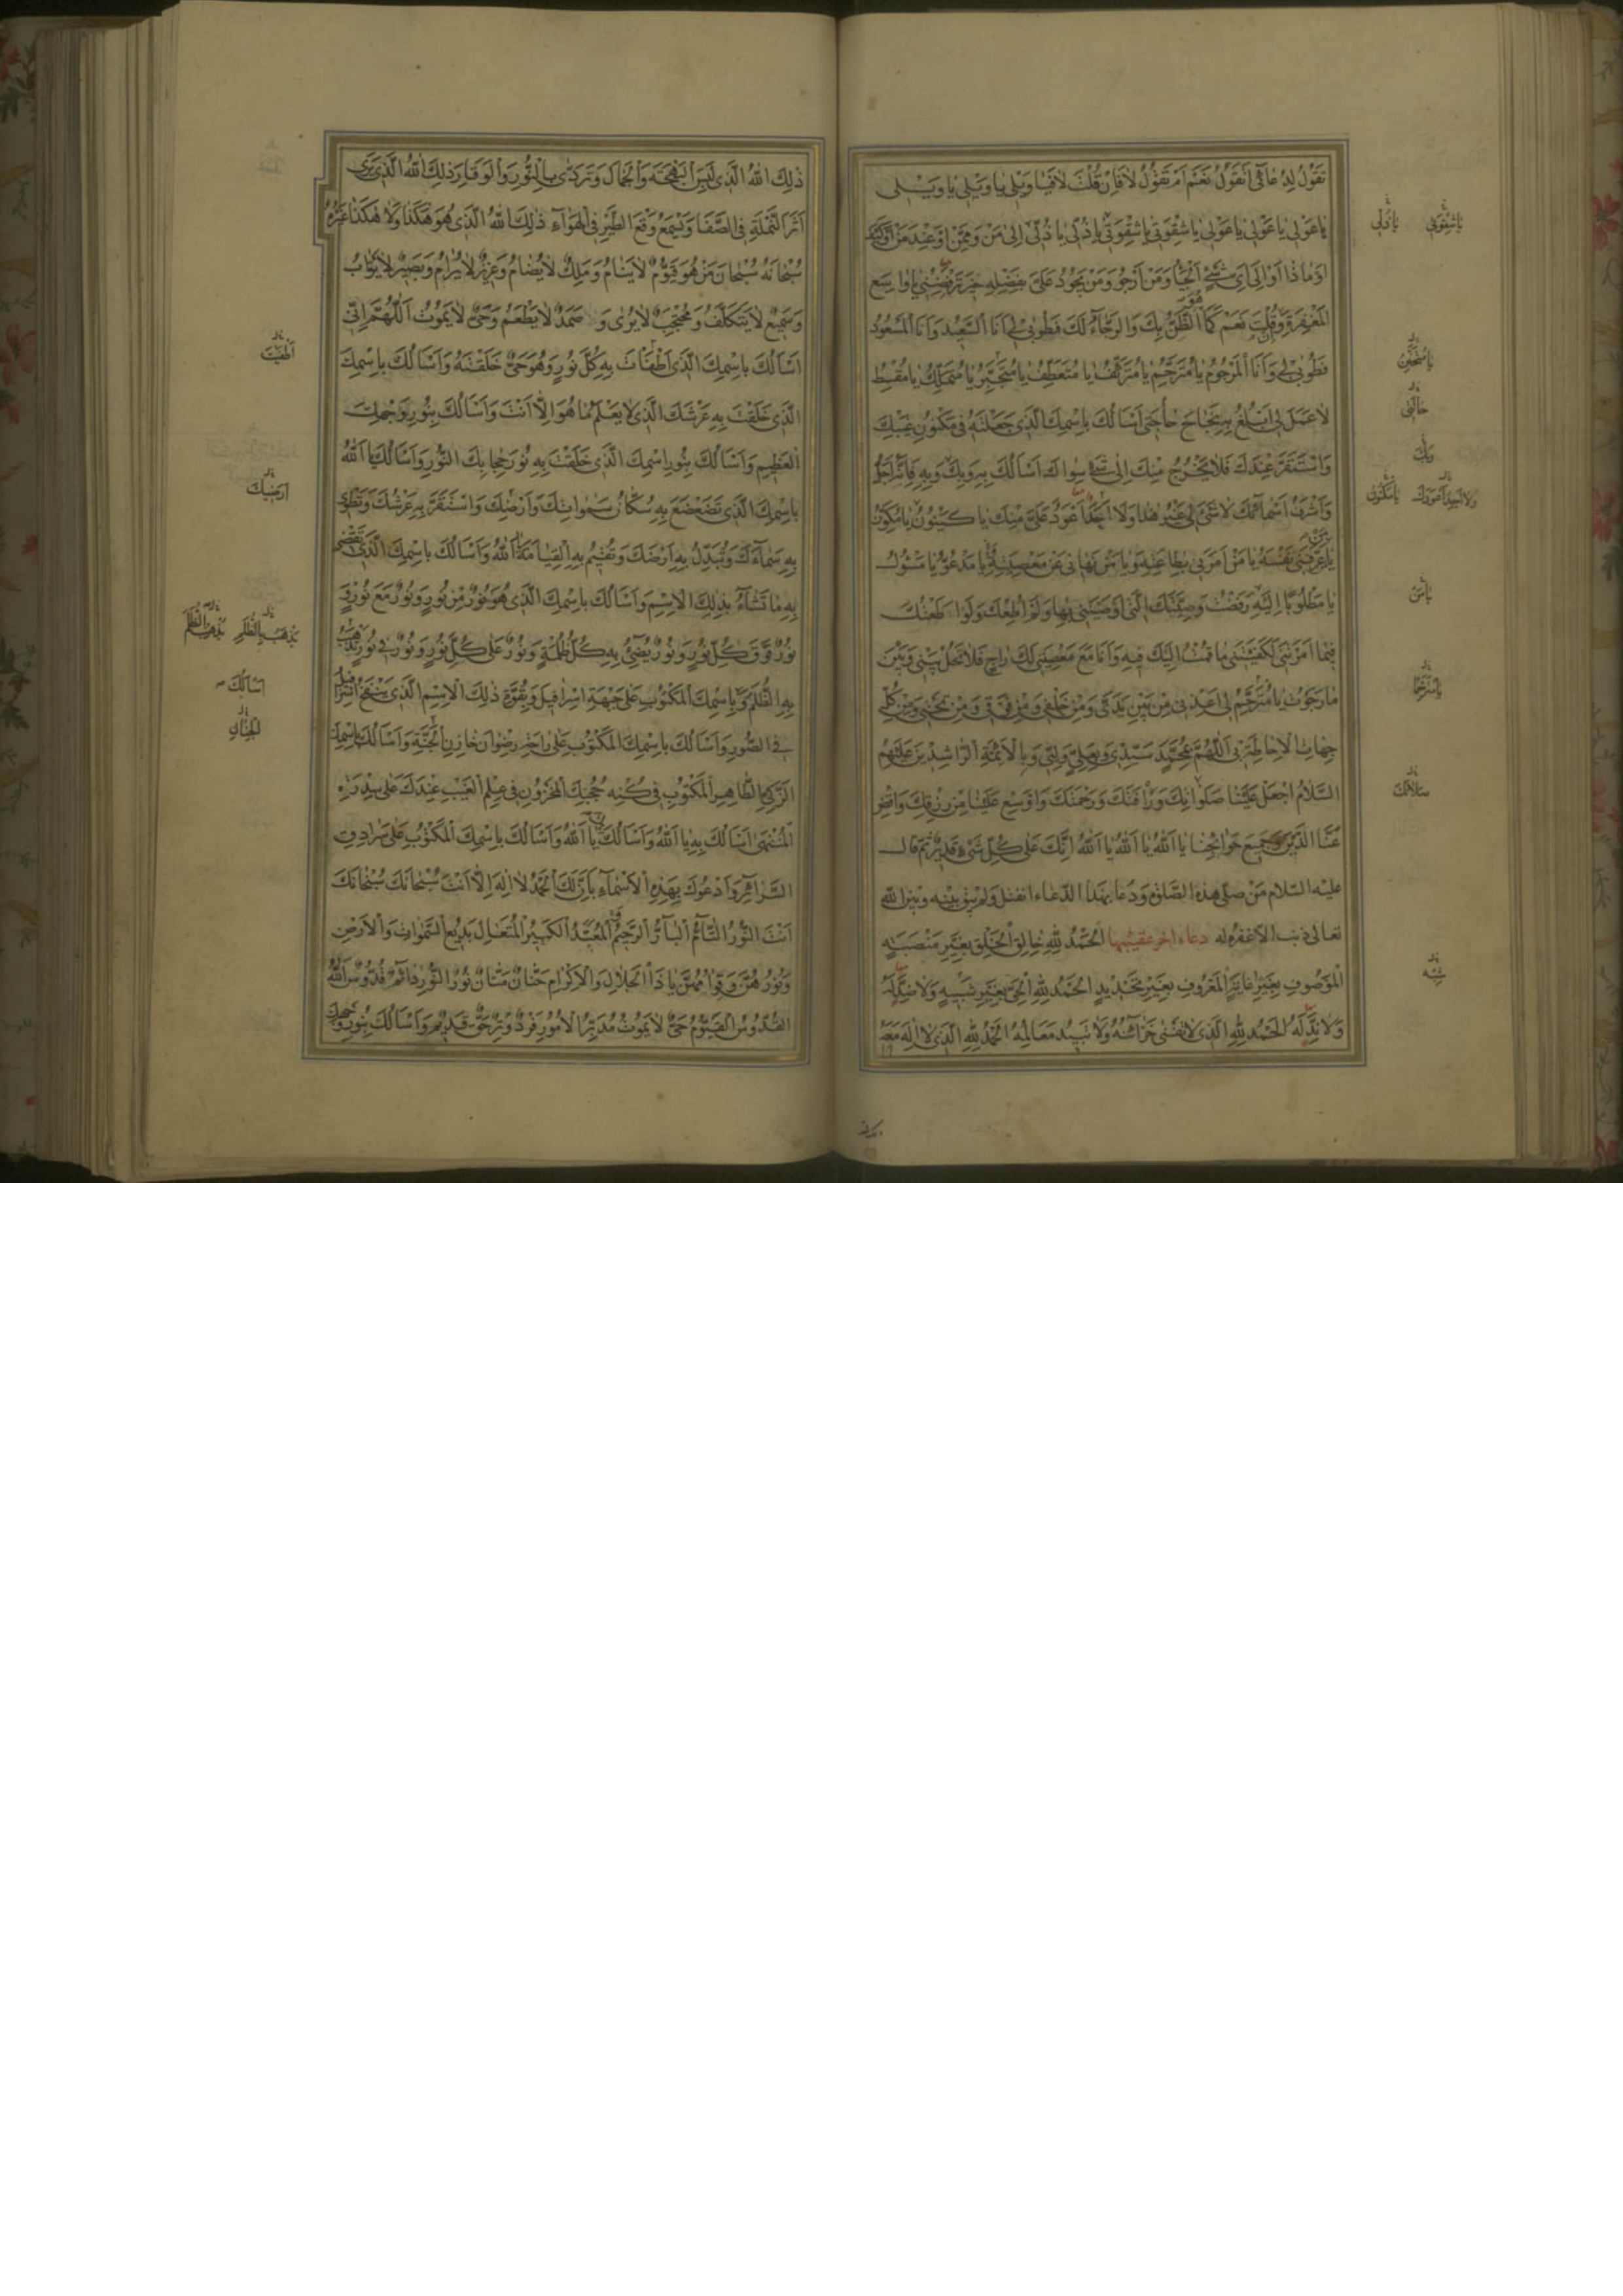 تَقُولُ لِدُعَائِي اَتَقُولُ نَعَمْ اَمْ تَقُولُ لَا فَاِنْ قُلْتَ لَا فَيَا وَيْلِي يَا وَيْلِي يَا وَيْلِي
يَا عَوْلِي يَا عَوْلِي يَا عَوْلِي يَا شِقْوَتِي يَا شِقْوَتِي يَا شِقْوَتِي يَا ذُلِّي يَا ذُلِّي يَا ذُلِّي اِلَى مَنْ وَمِمَّنْ اَوْ عِنْدَ مَنْ اَوْ كَيْفَ
اَوْ مَاذَا اَوْ اِلَى اَيِّ شَيْءٍ اَلْجَأُ وَمَنْ اَرْجُو وَمَنْ يَجُودُ عَلَيَّ بِفَضْلِهِ حِينَ تَرْفُضُنِي يَا وَاسِعَ
الْمَغْفِرَةِ وَاِنْ قُلْتَ نَعَمْ كَمَا الظَّنُّ بِكَ وَالرَّجَاءُ لَكَ فَطُوبَى لِي اَنَا السَّعِيدُ وَاَنَا الْمَسْعُودُ
فَطُوبَى لِي وَاَنَا الْمَرْحُومُ يَا مُتَرَحِّمُ يَا مُتَرَئِّفُ يَا مُتَعَطِّفُ يَا مُتَجَبِّرُ يَا مُتَمَلِّكُ يَا مُقْسِطُ
لَا عَمَلَ لِي اَبْلُغُ بِهِ نَجَاحَ حَاجَتِي اَسْاَلُكَ بِاسْمِكَ الَّذِي جَعَلْتَهُ فِي مَكْنُونِ غَيْبِكَ
وَاسْتَقَرَّ عِنْدَكَ فَلَا يَخْرُجُ مِنْكَ اِلَى شَيْءٍ سِوَاكَ اَسْاَلُكَ بِهِ وَبِكَ وَبِهِ فَاِنَّهُ اَجَلُّ
وَاَشْرَفُ اَسْمَائِكَ لَا شَيْءَ لِي غَيْرُ هَذَا وَلَا اَحَدَ اَعْوَدُ عَلَيَّ مِنْكَ يَا كَيْنُونُ يَا مُكَوِّنُ
يَا مَنْ عَرَّفَنِي نَفْسَهُ يَا مَنْ اَمَرَنِي بِطَاعَتِهِ وَيَا مَنْ نَهَانِي عَنْ مَعْصِيَتِهِ يَا مَدْعُوُّ يَا مَسْئُولُ
يَا مَطْلُوبًا اِلَيْهِ رَفَضْتُ وَصِيَّتَكَ الَّتِي اَوْصَيْتَنِي بِهَا وَلَمْ اُطِعْكَ وَلَوْ اَطَعْتُكَ
فِيمَا اَمَرْتَنِي لَكَفَيْتَنِي مَا قُمْتُ اِلَيْكَ فِيهِ وَاَنَا مَعَ مَعْصِيَتِي لَكَ رَاجٍ فَلَا تَحُلْ بَيْنِي وَبَيْنَ
مَا رَجَوْتُ يَا مُتَرَحِّمُ لِي اَعِذْنِي مِنْ بَيْنِ يَدَيَّ وَمِنْ خَلْفِي وَمِنْ فَوْقِي وَمِنْ تَحْتِي وَمِنْ كُلِّ
جِهَاتِ الْاِحَاطَةِ بِي اَللّٰهُمَّ بِمُحَمَّدٍ سَيِّدِي وَبِعَلِيٍّ وَلِيِّي وَبِالْاَئِمَّةِ الرَّاشِدِينَ عَلَيْهِمُ
السَّلَامُ اجْعَلْ عَلَيْنَا صَلَوَاتِكَ وَرَأْفَتَكَ وَرَحْمَتَكَ وَاَوْسِعْ عَلَيْنَا مِنْ رِزْقِكَ وَاقْضِ
عَنَّا الدَّيْنَ وَجَمِيعَ حَوَائِجِنَا يَا اَللّٰهُ يَا اَللّٰهُ يَا اَللّٰهُ اِنَّكَ عَلَى كُلِّ شَيْءٍ قَدِيرٌ ثم قال
عليه السلام من صلى هذه الصلوة ودعا بهذا الدعاء انفتل ولم يبق بينه وبين الله
تعالى ذنب الا غفره له دعاء اخر عقيبها اَلْحَمْدُ لِلّٰهِ خَالِقِ الْخَلْقِ بِغَيْرِ مَنْصَبَةٍ
الْمَوْصُوفِ بِغَيْرِ غَايَةٍ الْمَعْرُوفِ بِغَيْرِ تَحْدِيدٍ اَلْحَمْدُ لِلّٰهِ الْحَيِّ بِغَيْرِ شَبِيهٍ وَلَا ضِدَّ لَهُ
وَلَا نِدَّ لَهُ اَلْحَمْدُ لِلّٰهِ الَّذِي لَا تَفْنَى خَزَائِنُهُ وَلَا تَبِيدُ مَعَالِمُهُ اَلْحَمْدُ لِلّٰهِ الَّذِي لَا اِلٰهَ مَعَهُ
يَا شِقْوَتِي
يَا ذُلِّي
ذٰلِكَ اللّٰهُ الَّذِي لَبِسَ الْبَهْجَةَ وَالْجَمَالَ وَتَرَدَّى بِالنُّورِ وَالْوَقَارِ ذٰلِكَ اللّٰهُ الَّذِي يَرَى
اَثَرَ النَّمْلَةِ فِي الصَّفَا وَيَسْمَعُ وَقْعَ الطَّيْرِ فِي الْهَوَاءِ ذٰلِكَ اللّٰهُ الَّذِي هُوَ هٰكَذَا وَلَا هٰكَذَا غَيْرُهُ
سُبْحَانَهُ سُبْحَانَ مَنْ هُوَ قَيُّومٌ لَا يَنَامُ وَمَلِكٌ لَا يُضَامُ وَعَزِيزٌ لَا يُرَامُ وَبَصِيرٌ لَا يَرْتَابُ
وَسَمِيعٌ لَا يَتَكَلَّفُ وَمُحْتَجِبٌ لَا يُرَى وَصَمَدٌ لَا يَطْعَمُ وَحَيٌّ لَا يَمُوتُ اَللّٰهُمَّ اِنِّي
اَسْاَلُكَ بِاسْمِكَ الَّذِي اَطْفَأْتَ بِهِ كُلَّ نُورٍ وَهُوَ حَيٌّ خَلَقْتَهُ وَاَسْاَلُكَ بِاسْمِكَ
الَّذِي خَلَقْتَ بِهِ عَرْشَكَ الَّذِي لَا يَعْلَمُ مَا هُوَ اِلَّا اَنْتَ وَاَسْاَلُكَ بِنُورِ وَجْهِكَ
الْعَظِيمِ وَاَسْاَلُكَ بِنُورِ اسْمِكَ الَّذِي خَلَقْتَ بِهِ نُورَ حِجَابِكَ النُّورِ وَاَسْاَلُكَ يَا اَللّٰهُ
بِاسْمِكَ الَّذِي تَضَعْضَعَ بِهِ سُكَّانُ سَمٰوَاتِكَ وَاَرْضِكَ وَاسْتَقَرَّ بِهِ عَرْشُكَ وَتَطْوِي
بِهِ سَمَاءَكَ وَتُبَدِّلُ بِهِ اَرْضَكَ وَتُقِيمُ بِهِ الْقِيَامَةَ يَا اَللّٰهُ وَاَسْاَلُكَ بِاسْمِكَ الَّذِي تَقْضِي
بِهِ مَا تَشَاءُ بِذٰلِكَ الْاِسْمِ وَاَسْاَلُكَ بِاسْمِكَ الَّذِي هُوَ نُورٌ مِنْ نُورٍ وَنُورٌ مَعَ نُورٍ وَ
نُورٌ فَوْقَ كُلِّ نُورٍ وَنُورٌ يُضِيءُ بِهِ كُلُّ ظُلْمَةٍ وَنُورٌ عَلَى كُلِّ نُورٍ وَنُورٌ فِي نُورٍ تَذْهَبُ
بِهِ الظُّلَمُ وَبِاسْمِكَ الْمَكْتُوبِ عَلَى جَبْهَةِ اِسْرَافِيلَ وَبِقُوَّةِ ذٰلِكَ الْاِسْمِ الَّذِي يَنْفُخُ اِسْرَافِيلُ
فِي الصُّورِ وَاَسْاَلُكَ بِاسْمِكَ الْمَكْتُوبِ عَلَى رَاحَةِ رِضْوَانَ خَازِنِ الْجَنَّةِ وَاَسْاَلُكَ بِاسْمِكَ
الزَّكِيِّ الطَّاهِرِ الْمَكْتُوبِ فِي كُنْهِ حُجُبِكَ الْمَخْزُونِ فِي عِلْمِ الْغَيْبِ عِنْدَكَ عَلَى سِدْرَةِ
الْمُنْتَهَى اَسْاَلُكَ بِهِ يَا اَللّٰهُ وَاَسْاَلُكَ يَا اَللّٰهُ وَاَسْاَلُكَ بِاسْمِكَ الْمَكْتُوبِ عَلَى سُرَادِقِ
السَّرَائِرِ وَاَدْعُوكَ بِهٰذِهِ الْاَسْمَاءِ بِاَنَّ لَكَ الْحَمْدَ لَا اِلٰهَ اِلَّا اَنْتَ سُبْحَانَكَ سُبْحَانَكَ
اَنْتَ النُّورُ التَّامُّ الْبَارُّ الرَّحِيمُ الْمُعِيدُ الْكَبِيرُ الْمُتَعَالِ بَدِيعُ السَّمٰوَاتِ وَالْاَرْضِ
وَنُورُهُنَّ وَقِوَامُهُنَّ يَا ذَا الْجَلَالِ وَالْاِكْرَامِ حَنَّانٌ مَنَّانٌ نُورُ النُّورِ دَائِمٌ قُدُّوسٌ اَللّٰهُ
الْقُدُّوسُ الْقَيُّومُ حَيٌّ لَا يَمُوتُ مُدَبِّرُ الْاُمُورِ فَرْدٌ وِتْرٌ حَقٌّ قَدِيمٌ وَاَسْاَلُكَ بِنُورِ وَجْهِكَ
اَرَضِيكَ
اَسْاَلُكَ
الْجِنَانِ